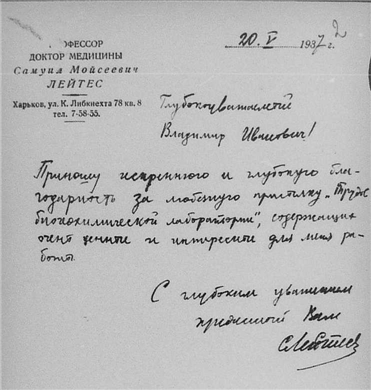 ПРОФЕССОР
ДОКТОР МЕДИЦИНЫ
Самуил Мойсеевич
ЛЕЙТЕС
Харьков, ул. К. Либкнехта 78 кв. 8
тел. 7-58-55.
20. V 1937 г.
2
Глубокоуважаемый
Владимир Иванович!
Приношу искреннюю и глубокую бла-
годарность за любезную присылку „Трудов
биохимической лаборатории", содержащих
очень ценные и интересные для меня ра-
боты.
С глубоким уважением
преданный Вам
СЛейтес